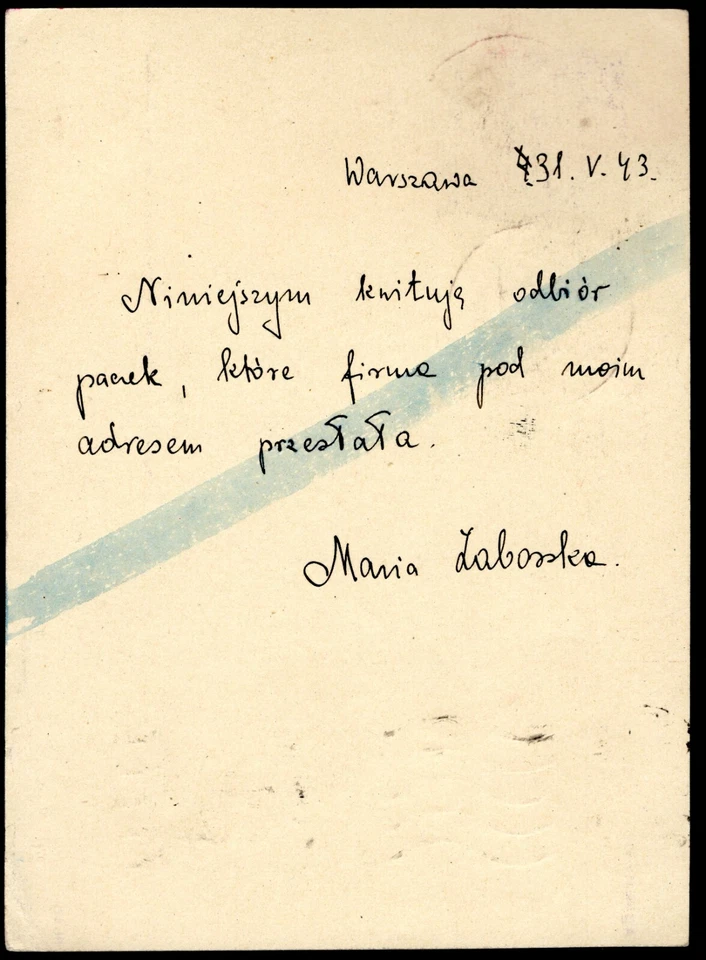 Warszawa 31. V. 43.
Niniejszym kwituję odbiór
paczek, które firma pod moim
adresem przesłała.
Maria